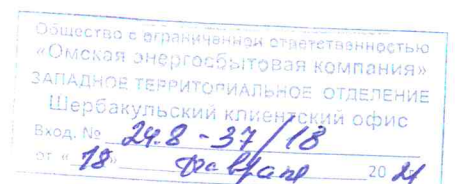 Общество с ограниченной ответственностью
«Омская энергосбытовая компания»
ЗАПАДНОЕ ТЕРРИТОРИАЛЬНОЕ ОТДЕЛЕНИЕ
Шербакульский клиентский офис
Вход. № 24.8-37/18
от «18» февраля 20 21